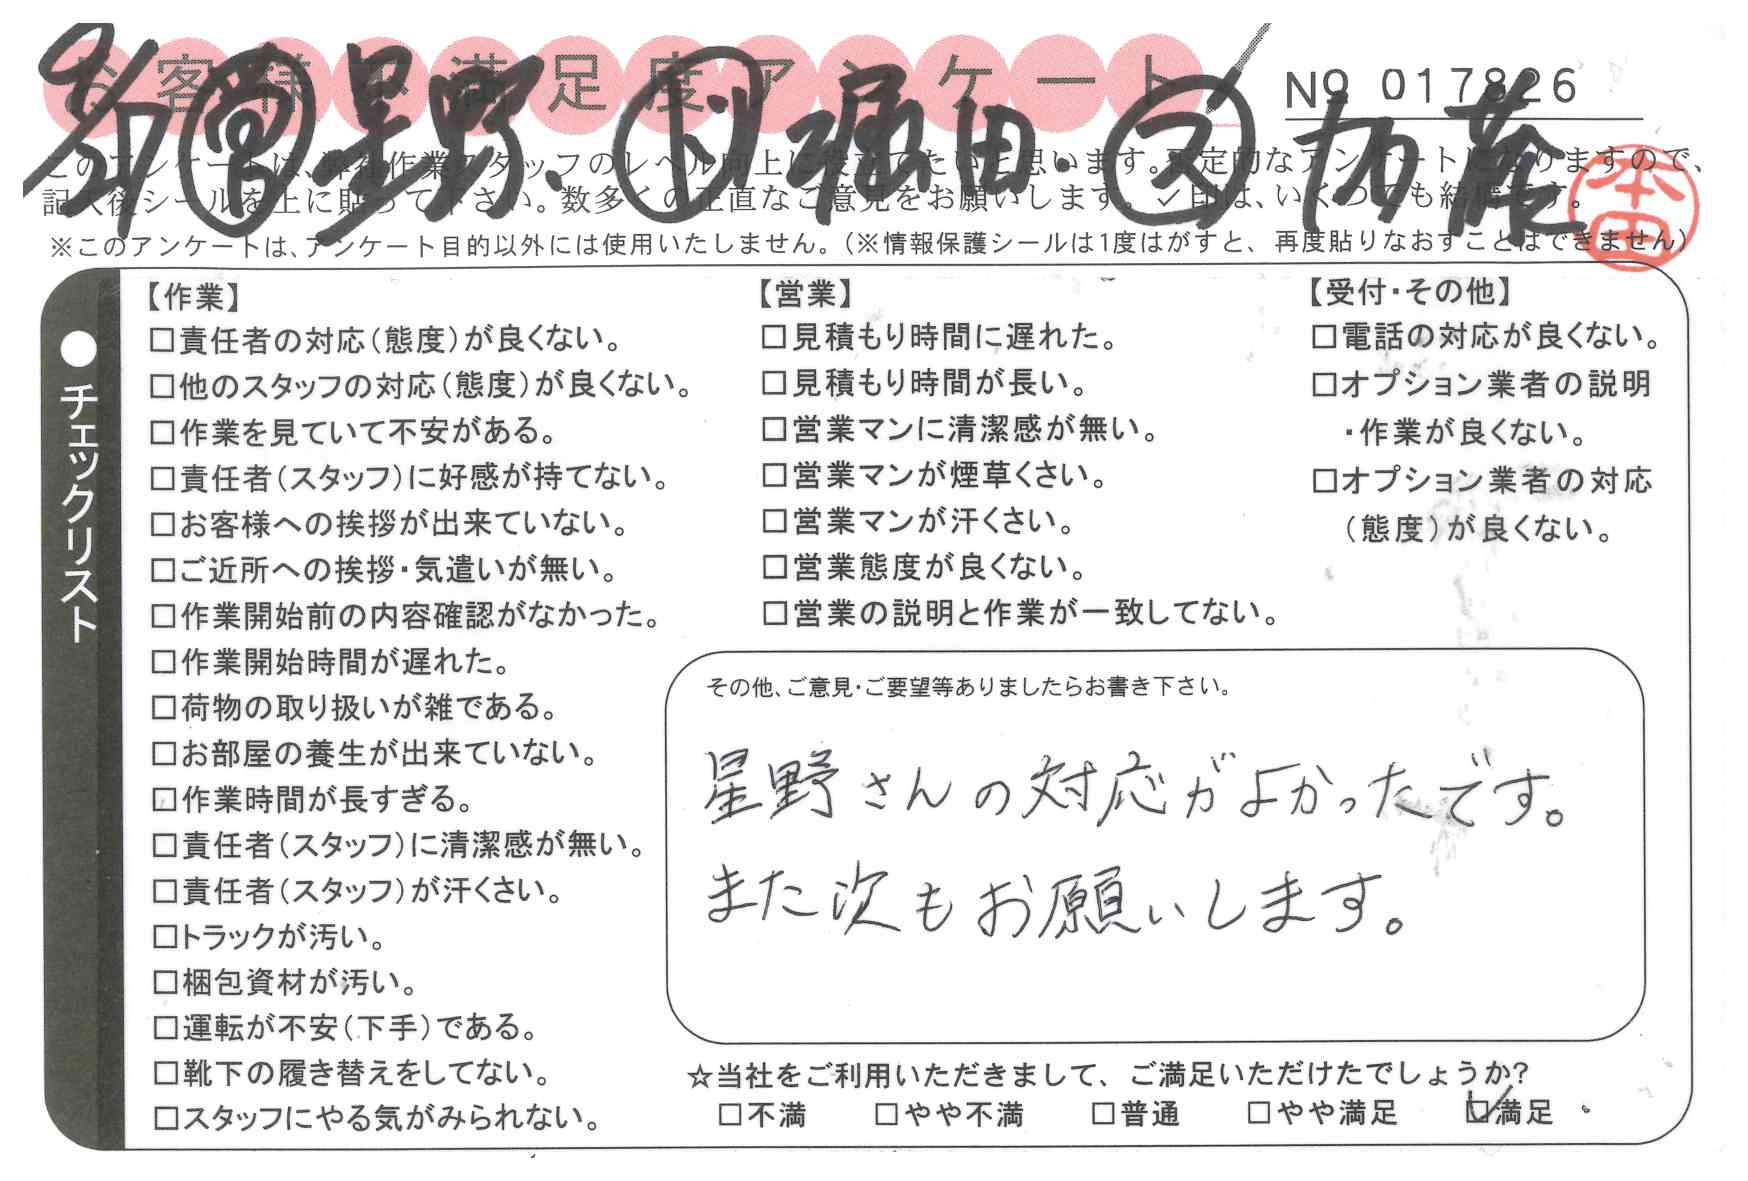 お客様の満足度アンケート
NO 017826
9/7 営 星野、ト 堀田・ス 加藤
このアンケートは、弊社作業スタッフのレベル向上に役立てたいと思います。限定的なアンケートになりますので、
記入後シールを上に貼って下さい。数多くの正直なご意見をお願いします。✓印は、いくつでも結構です。
本田
※このアンケートは、アンケート目的以外には使用いたしません。（※情報保護シールは1度はがすと、再度貼りなおすことはできません）
●チェックリスト
【作業】
□責任者の対応（態度）が良くない。
□他のスタッフの対応（態度）が良くない。
□作業を見ていて不安がある。
□責任者（スタッフ）に好感が持てない。
□お客様への挨拶が出来ていない。
□ご近所への挨拶・気遣いが無い。
□作業開始前の内容確認がなかった。
□作業開始時間が遅れた。
□荷物の取り扱いが雑である。
□お部屋の養生が出来ていない。
□作業時間が長すぎる。
□責任者（スタッフ）に清潔感が無い。
□責任者（スタッフ）が汗くさい。
□トラックが汚い。
□梱包資材が汚い。
□運転が不安（下手）である。
□靴下の履き替えをしてない。
□スタッフにやる気がみられない。
【営業】
□見積もり時間に遅れた。
□見積もり時間が長い。
□営業マンに清潔感が無い。
□営業マンが煙草くさい。
□営業マンが汗くさい。
□営業態度が良くない。
□営業の説明と作業が一致してない。
【受付・その他】
□電話の対応が良くない。
□オプション業者の説明
・作業が良くない。
□オプション業者の対応
（態度）が良くない。
その他、ご意見・ご要望等ありましたらお書き下さい。
星野さんの対応がよかったです。
また次もお願いします。
☆当社をご利用いただきまして、ご満足いただけたでしょうか?
□不満 □やや不満 □普通 □やや満足 ☑満足